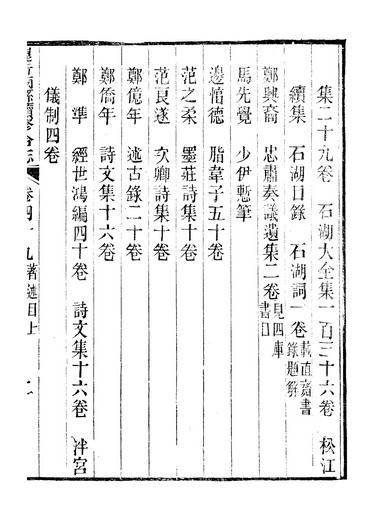 集二十九卷　石湖大全集一百三十六卷　松江
續集　石湖日錄　石湖詞一卷載直齋書錄題解
鄭興裔　忠肅奏議遺集二卷見四庫書目
馬先覺　少伊慙筆
邊惇德　脂韋子五十卷
范之柔　墨莊詩集十卷
范良遂　次卿詩集十卷
鄭億年　述古錄二十卷
鄭僑年　詩文集十六卷
鄭　準　經世鴻編四十卷　詩文集十六卷　泮宮
儀制四卷
合志　卷四十九著述目上